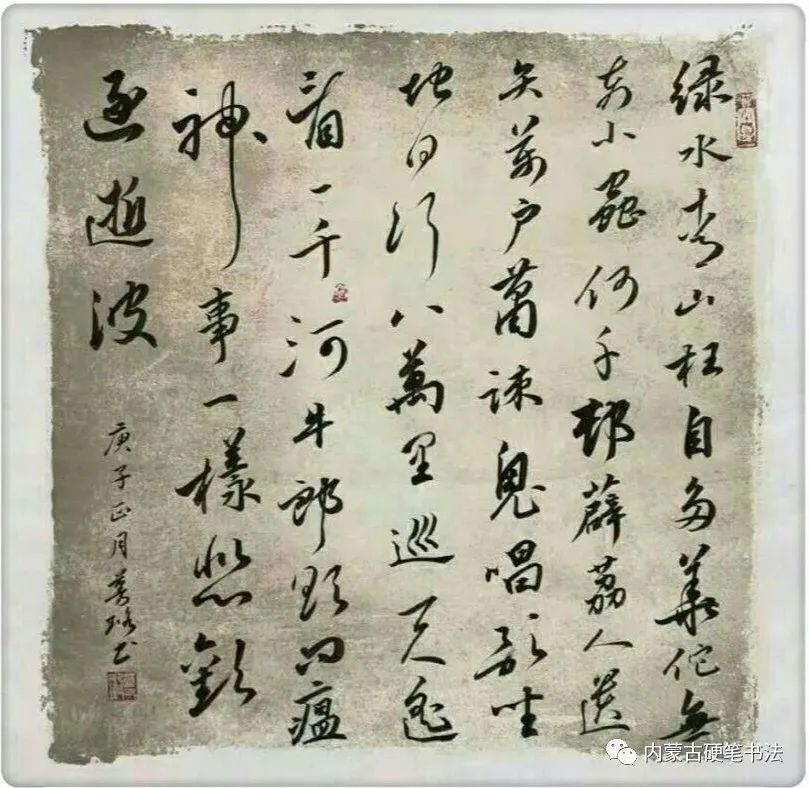 绿水青山枉自多華佗無
奈小蟲何千邨薜荔人遗
矢萬户萧疎鬼唱歌坐
地日行八萬里巡天遥
看一千河牛郎欲问瘟
神事一樣悲歡
逐逝波
庚子正月书
内蒙古硬笔书法